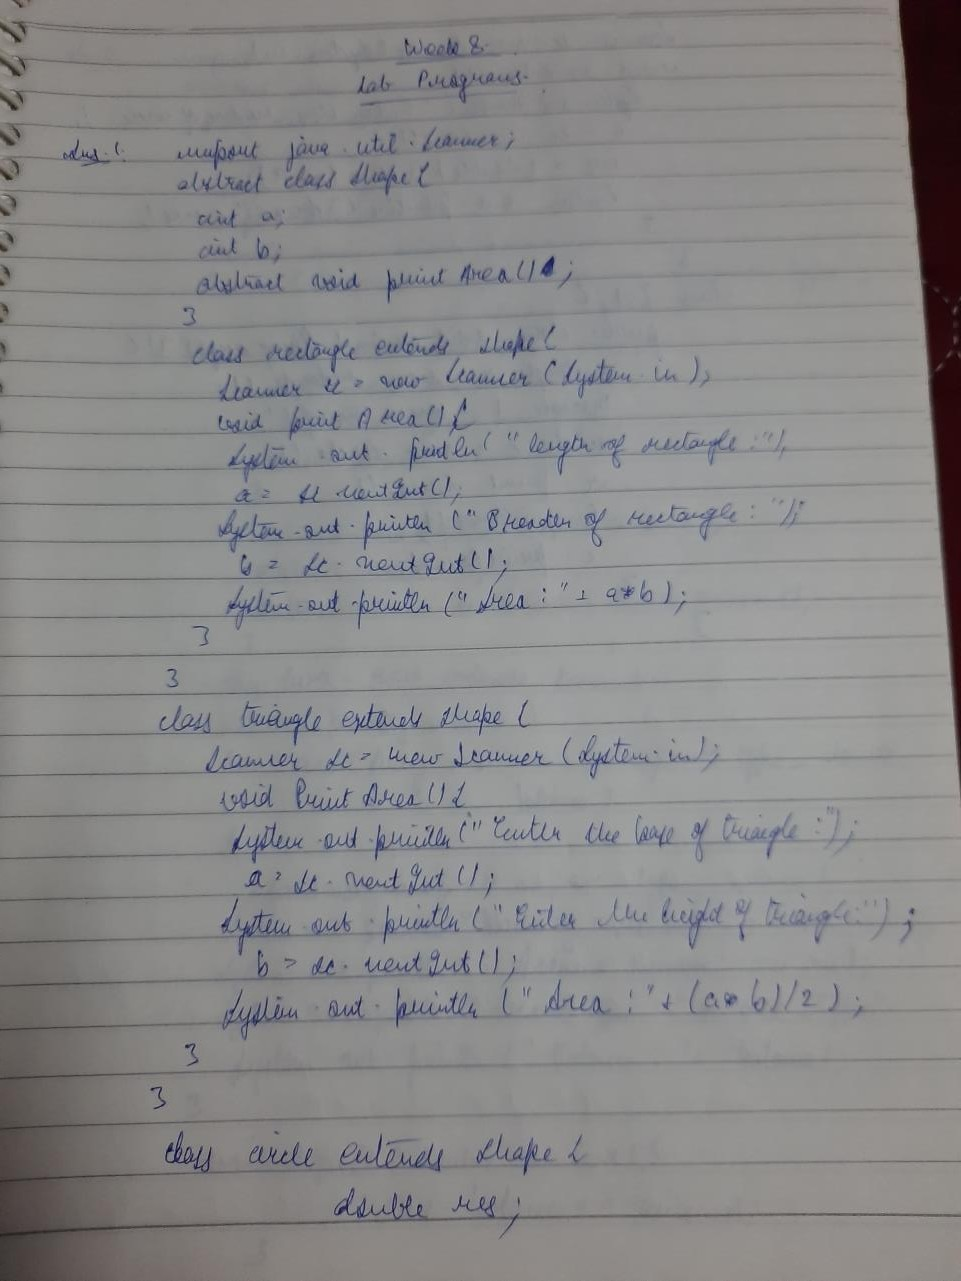 Week 8.
Lab Programs.
Ans-1. import java.util.Scanner;
abstract class Shape {
int a;
int b;
abstract void print Area();
}
class rectangle extends Shape {
Scanner sc = new Scanner (System.in);
void print Area() {
System.out.println(" length of rectangle :");
a = sc.nextInt();
System.out.println (" Breadth of rectangle : ");
b = sc.nextInt();
System.out.println (" Area : " + a*b);
}
}
class triangle extends Shape {
Scanner sc = new Scanner (System.in);
void Print Area() {
System.out.println(" Enter the base of triangle :");
a = sc.nextInt();
System.out.println (" Enter the height of triangle:");
b = sc.nextInt();
System.out.println (" Area : " + (a*b)/2);
}
}
class circle extends Shape {
double res;